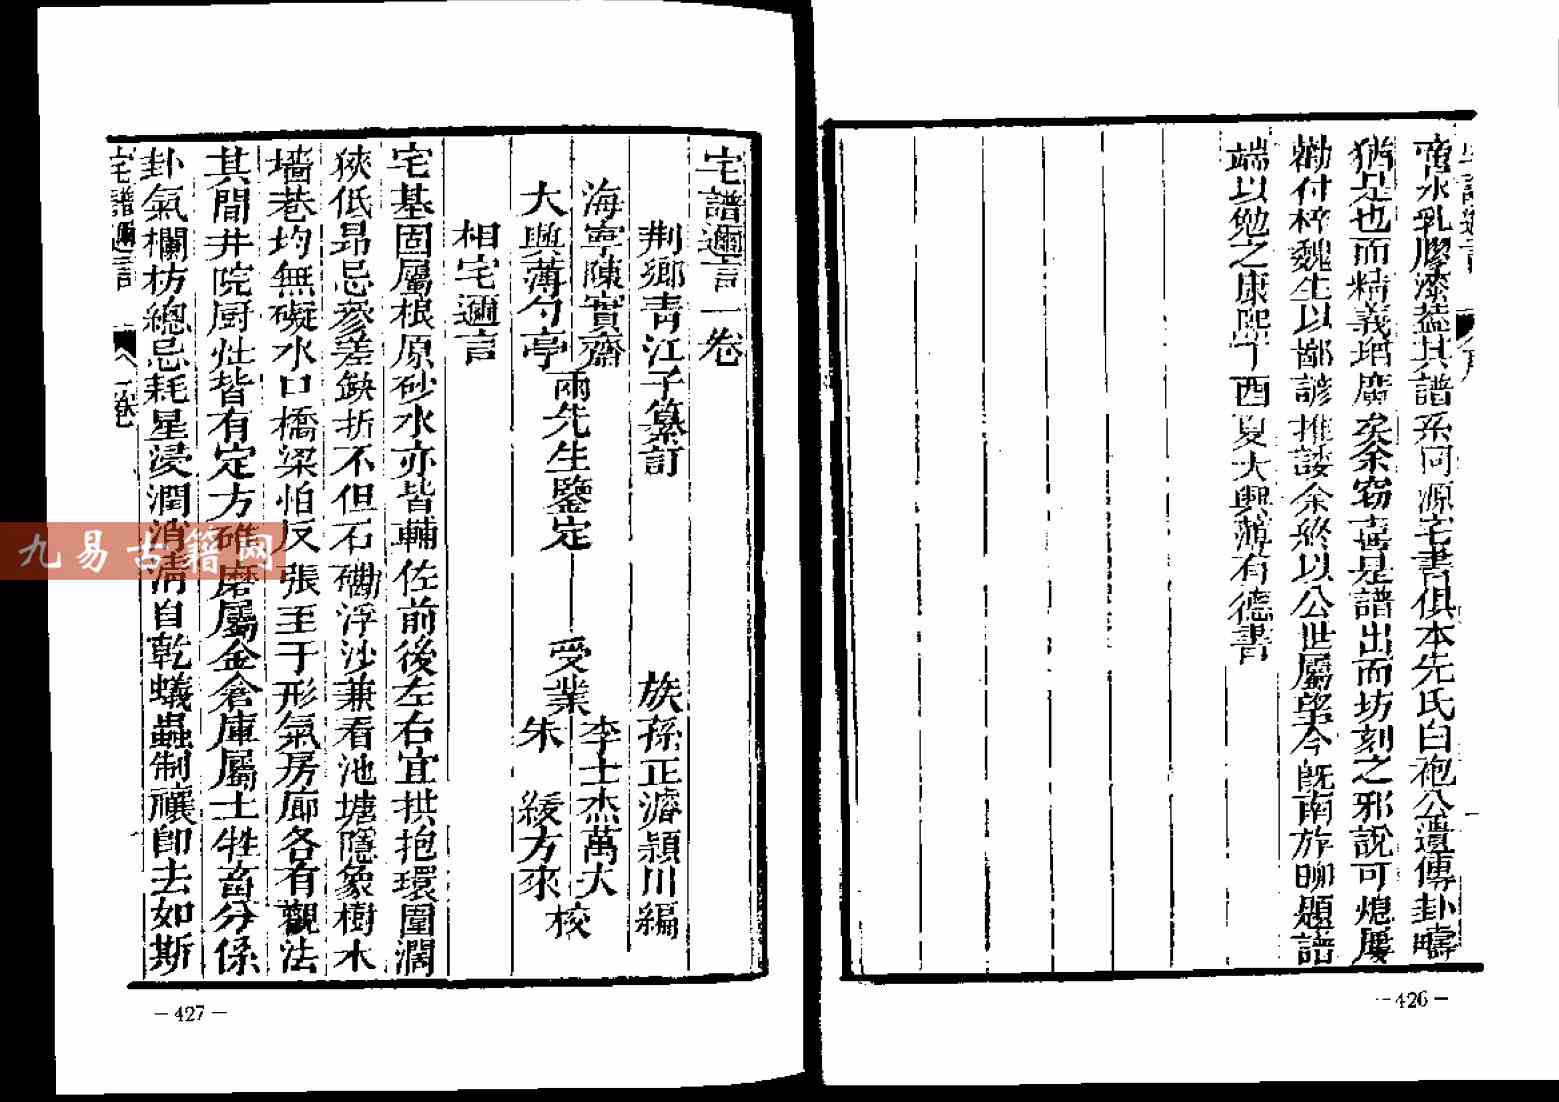 宅譜邇言
啻水乳膠漆葢其譜系同源宅書俱本先氏白袍公遺傳卦疇
猶是也而精義坍廣矣余窃喜是譜出而坊刻之邪説可熄屢
勸付梓魏生以鄙諺推諉余終以公世屬望今既南旋聊題譜
端以勉之康熙丁酉夏大興薄有德書
-426-
宅譜邇言一卷
荆鄉青江子纂訂
族孫正濬潁川編
海寧陳實齋
大興薄勺亭
兩先生鑒定
受業
李士杰萬大
朱 綬方來
校
相宅邇言
宅基固屬根原砂水亦皆輔佐前後左右宜拱抱環圍濶
狹低昂忌參差缺折不但石磡浮沙兼看池塘隱象樹木
墻巷均無礙水口橋梁怕反張至于形氣房廊各有觀法
其間井院厨灶皆有定方碓磨屬金倉庫屬土牲畜分係
卦氣欄枋總忌耗星浸潤消清自乾蟻蟲制禳卽去如斯
宅譜邇言
一卷
-427-
九易古籍网